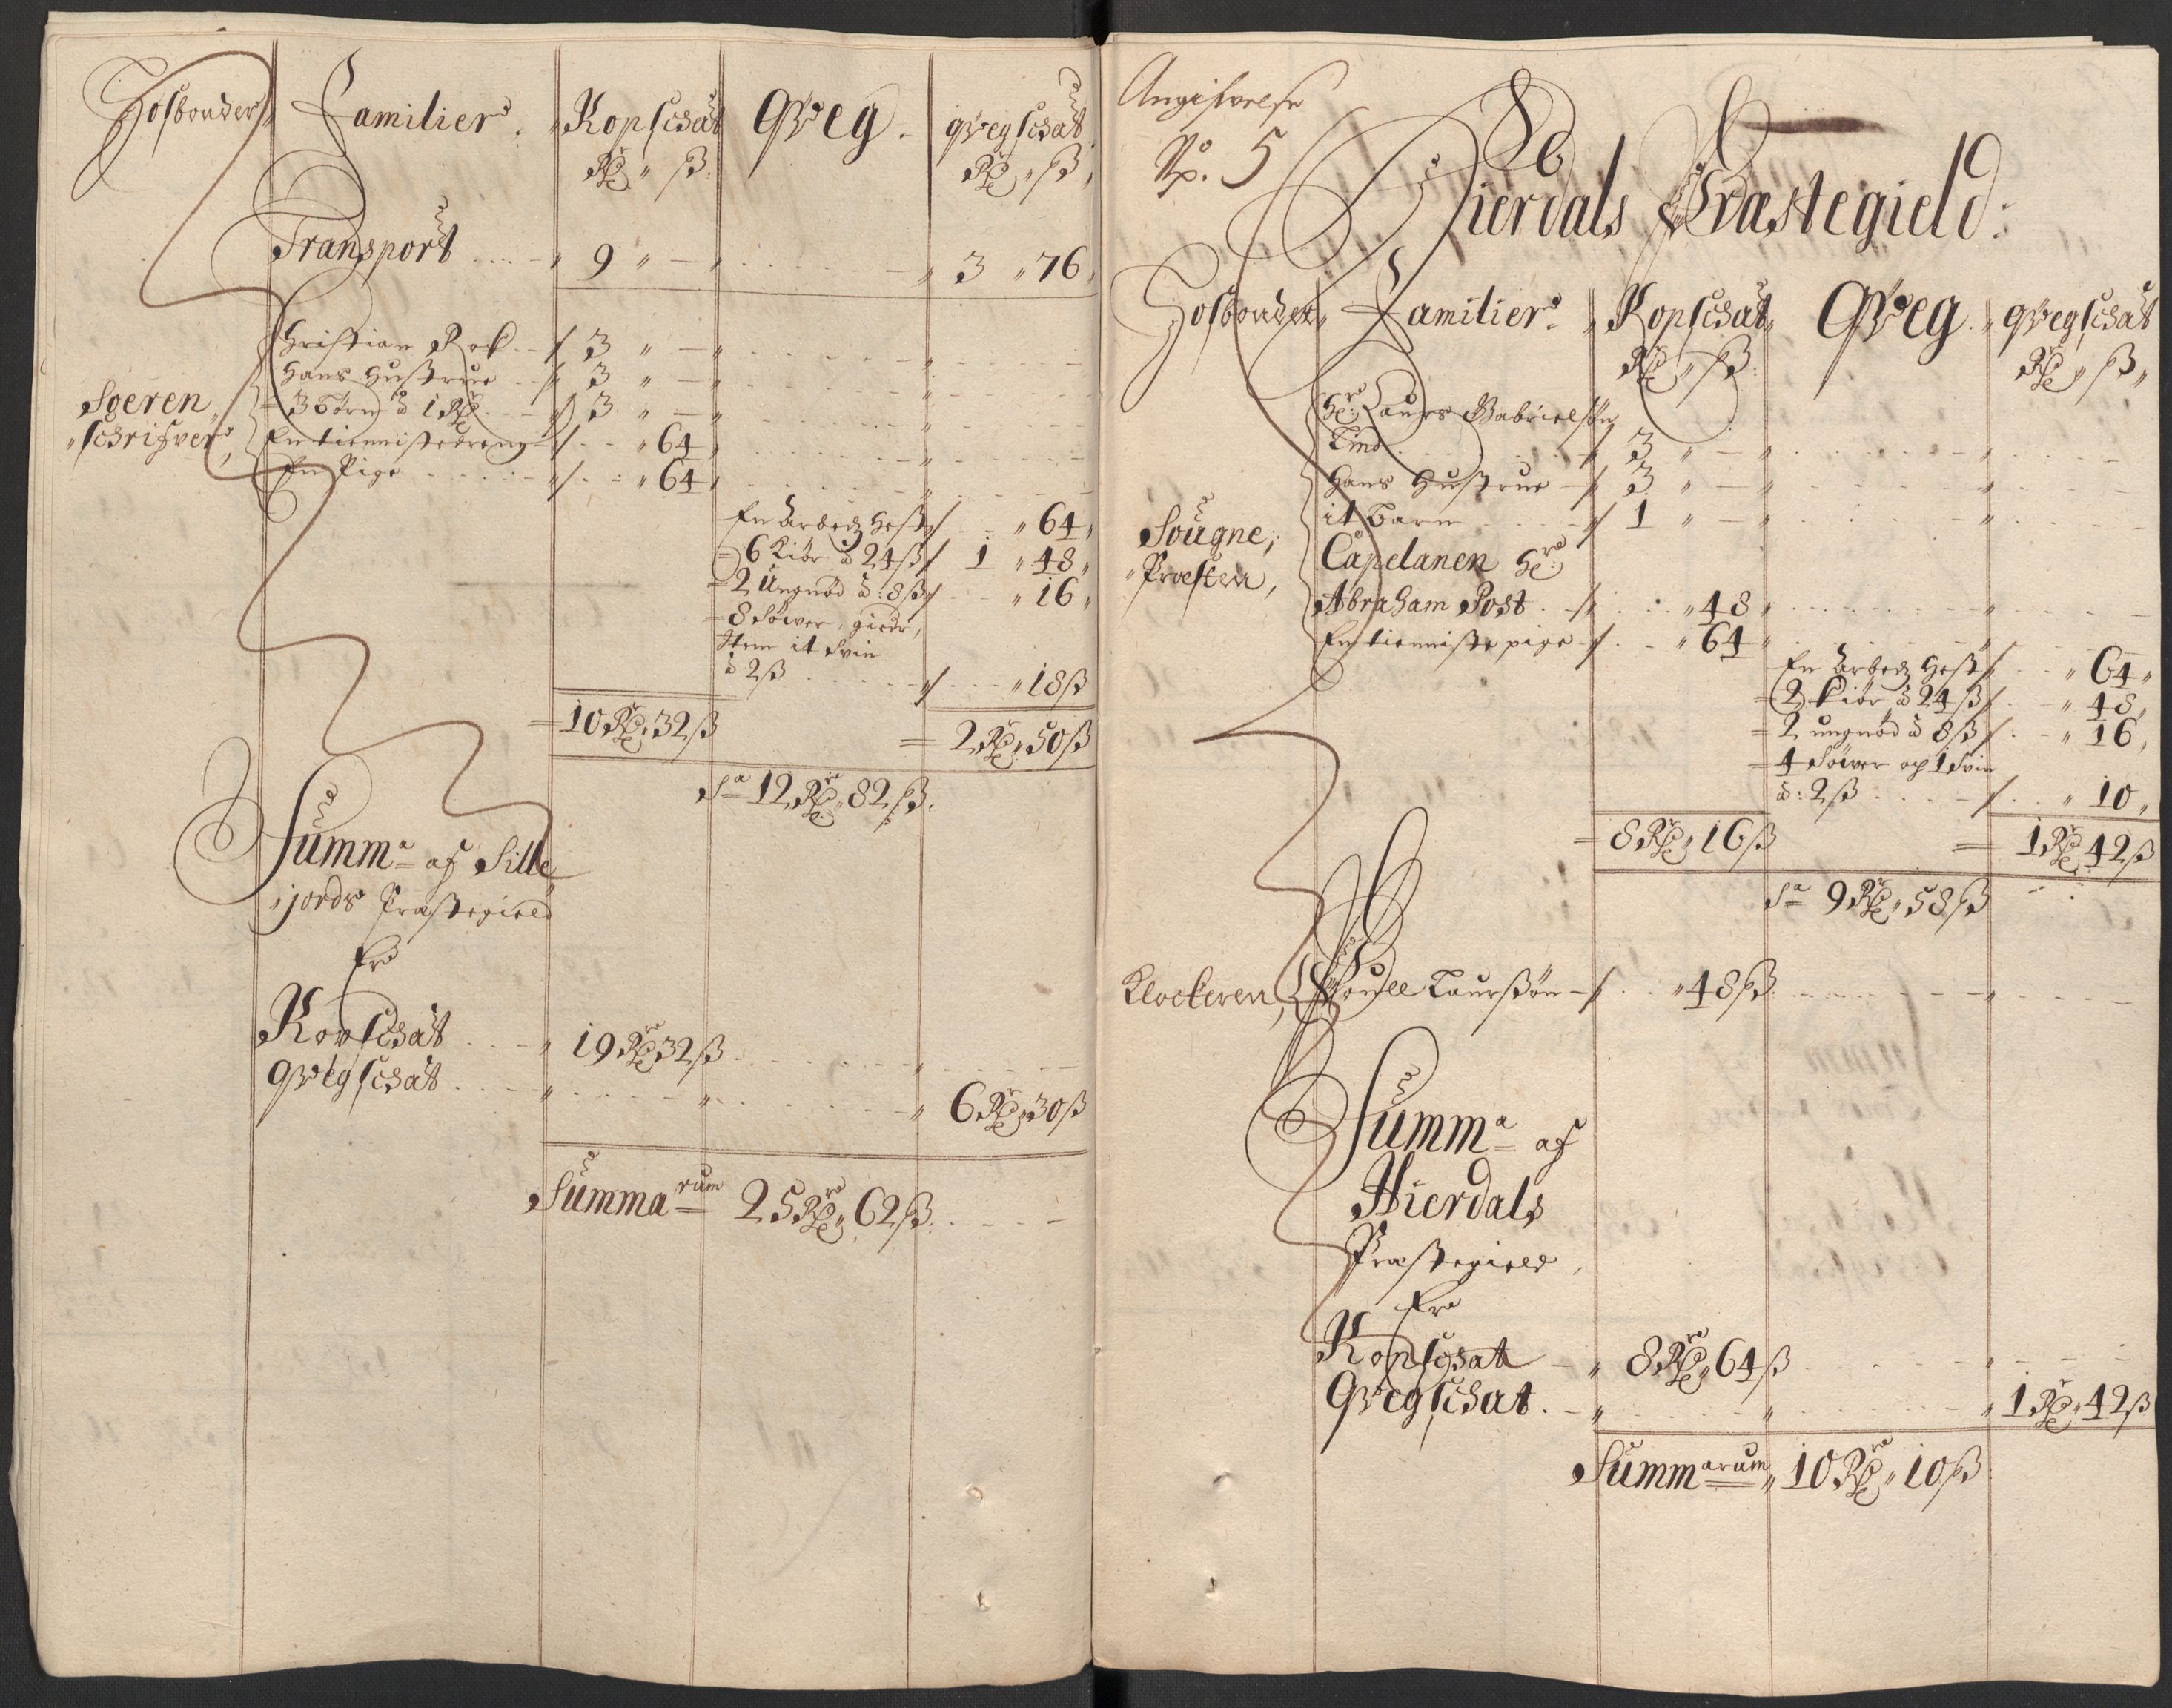 Hosbonder Familier Kopschat Qveg qvegschat
Rdr ß Rdr ß
Transport 9 " 3 " 76
Christian Rok 3 "
Hans Hustrue 3 "
Soeren
3 Börn à 1 Rdr 3 "
schrifver
En tienniste dreng " 64
En Pige " 64
En arbedz hest " 64
6 Kiör à 24 ß 1 " 48
2 Ungnöd à: 8 ß " 16
8 Söwer, gieder,
Item it Svin
à 2 ß " 18 ß
10 Rdr 32 ß 2 Rdr 50 ß
Sa 12 Rdr 82 ß
Summa af Sille
jords Præstegield
Er
Kopschat 19 Rdr 32 ß
Qvegschat 6 Rdr 30 ß
Summarum 25 Rdr 62 ß
Angifvelse
No. 5
Hierdals Præstegield:
Hosbonder Familier Kopschat Qveg qvegschat
Rdr ß Rdr ß
Hr: Laurs Gabrielsön
Lind 3 "
Hans Hustrue 3 "
it Barn 1 "
Sougne
Præsten
Capelanen Hr
Abraham Post " 48
En tienniste pige " 64
En arbedz hest " 64
2 Kiör à 24 ß " 48
2 ungnöd à 8 ß " 16
4 Söwer og 1 Svin
à: 2 ß " 10
8 Rdr 16 ß 1 Rdr 42 ß
Sa 9 Rdr 58 ß
Klockeren Poull Laurssön " 48 ß
Summa af
Hierdals
Præstegield
Er
Kopschat 8 Rdr 64 ß
Qvegschat 1 Rdr 42 ß
Summarum 10 Rdr 10 ß